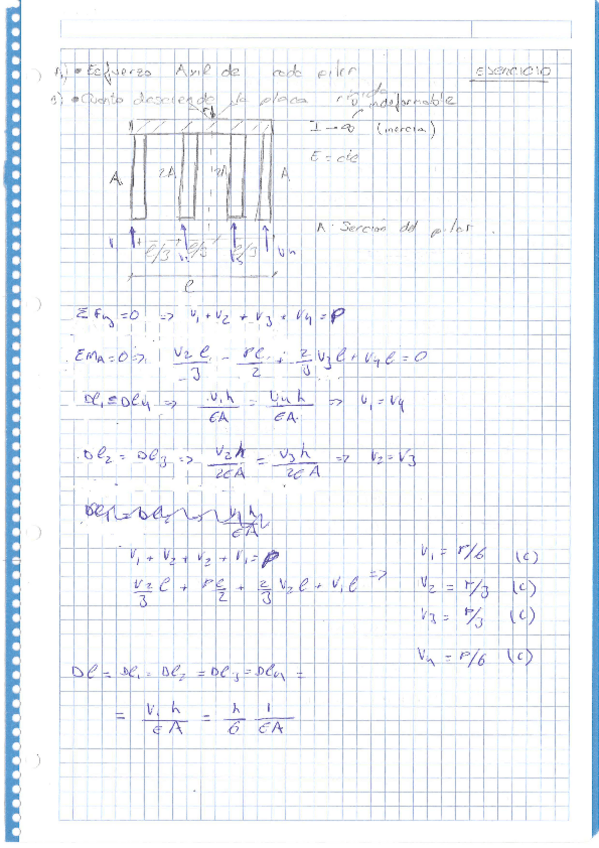 A) • Esfuerzo Axil de cada pilar
EJERCICIO
B) • Cuanto desciende la placa rígida
indeformable
I → ∞ (inercia)
E = cte
A 2A 2A A
A: Sección del pilar.
V1 l/3 l/3 l/3 V4
l
ΣFy = 0 => V1 + V2 + V3 + V4 = P
ΣMA = 0 => V2 l/3 - Pl/2 + 2/3 V3 l + V4 l = 0
Dl1 = Dl4 => V1 h/EA = V4 h/EA => V1 = V4
Dl2 = Dl3 => V2 h/2EA = V3 h/2EA => V2 = V3
V1 + V2 + V2 + V1 = P
V2/3 l + Pl/2 + 2/3 V2 l + V1 l =>
V1 = P/6 (C)
V2 = P/3 (C)
V3 = P/3 (C)
V4 = P/6 (C)
Dl = Dl1 = Dl2 = Dl3 = Dl4 =
= V1 h/EA = h/6 1/EA